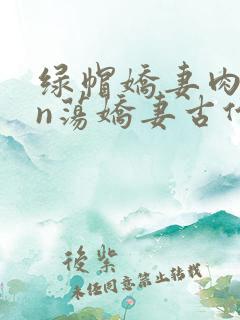 绿帽嬌妻肉
n蕩嬌妻古代
後紫
未经同意禁止转载